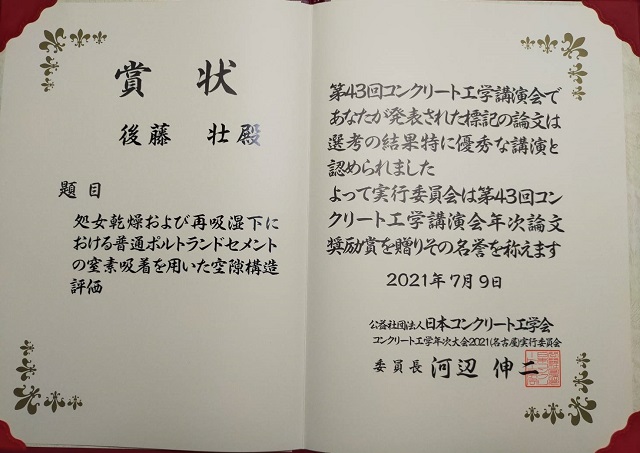 賞状
後藤 壮殿
題目
処女乾燥および再吸湿下に
おける普通ポルトランドセメント
の窒素吸着を用いた空隙構造
評価
第43回コンクリート工学講演会で
あなたが発表された標記の論文は
選考の結果特に優秀な講演と
認められました
よって実行委員会は第43回コン
クリート工学講演会年次論文
奨励賞を贈りその名誉を称えます
2021年7月9日
公益社団法人日本コンクリート工学会
コンクリート工学年次大会2021(名古屋)実行委員会
委員長 河辺 伸二